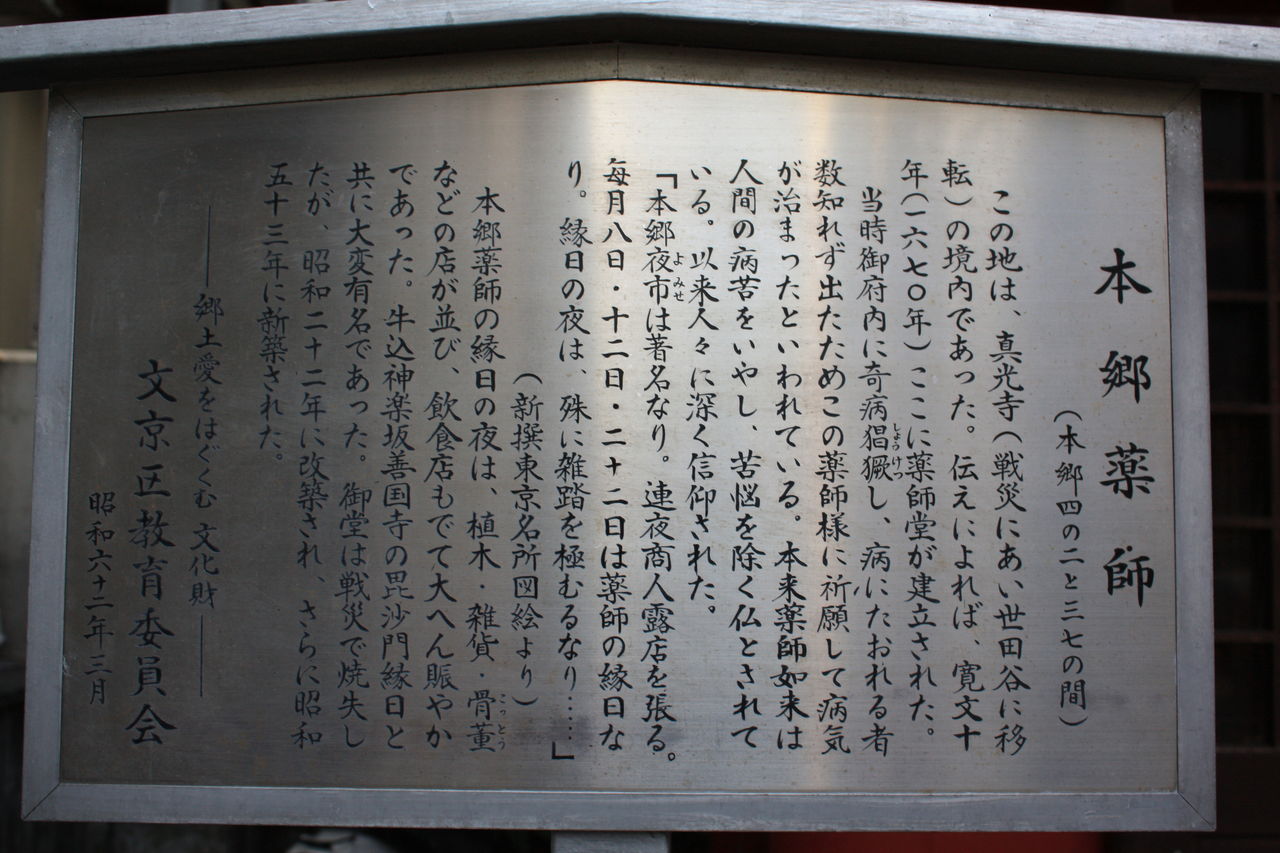 本郷薬師
（本郷四の二と三七の間）
この地は、真光寺（戦災にあい世田谷に移
転）の境内であった。伝えによれば、寛文十
年（一六七〇年）ここに薬師堂が建立された。
当時御府内に奇病猖獗し、病にたおれる者
しょうけつ
数知れず出たためこの薬師様に祈願して病気
が治まったといわれている。本来薬師如来は
人間の病苦をいやし、苦悩を除く仏とされて
いる。以来人々に深く信仰された。
「本郷夜市は著名なり。連夜商人露店を張る。
よみせ
毎月八日・十二日・二十二日は薬師の縁日な
り。縁日の夜は、殊に雑踏を極むるなり……」
（新撰東京名所図絵より）
本郷薬師の縁日の夜は、植木・雑貨・骨董
こっとう
などの店が並び、飲食店もでて大へん賑やか
であった。牛込神楽坂善国寺の毘沙門縁日と
共に大変有名であった。御堂は戦災で焼失し
たが、昭和二十二年に改築され、さらに昭和
五十三年に新築された。
――郷土愛をはぐくむ 文化財――
文京区教育委員会
昭和六十二年三月